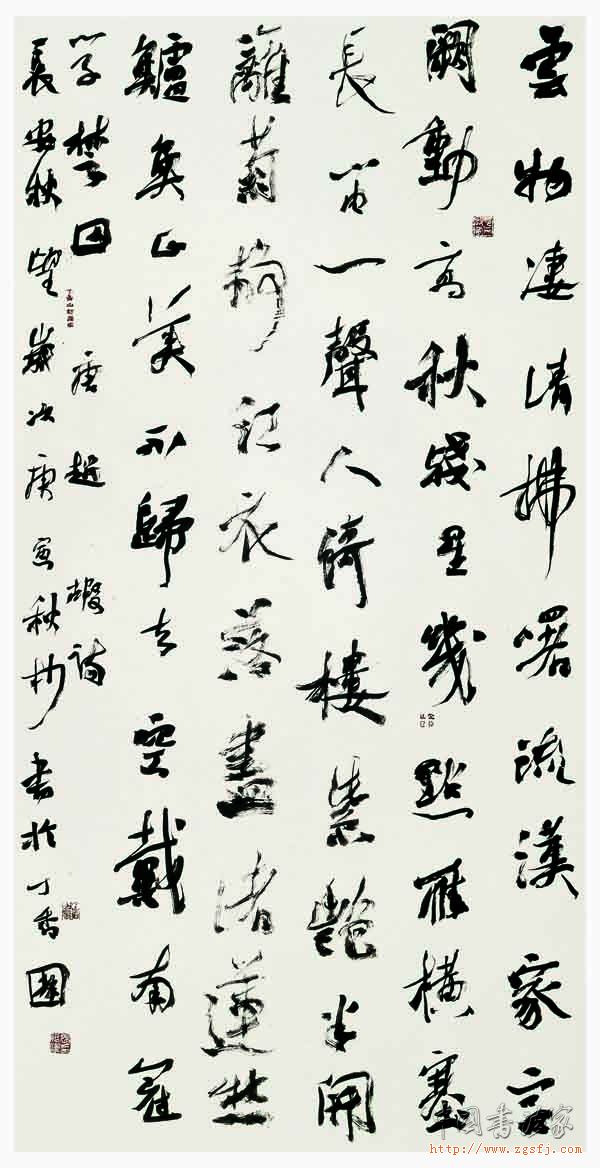 雲物凄清拂曙流漢家宮
闕動高秋殘星幾點雁橫塞
長笛一聲人倚樓紫艷半開
籬菊靜紅衣落盡渚蓮愁
鱸魚正美不歸去空戴南冠
學楚囚 唐趙嘏詩
長安秋望歲次庚寅秋杪書於丁香園
中国书法家
http://www.zgsfj.com